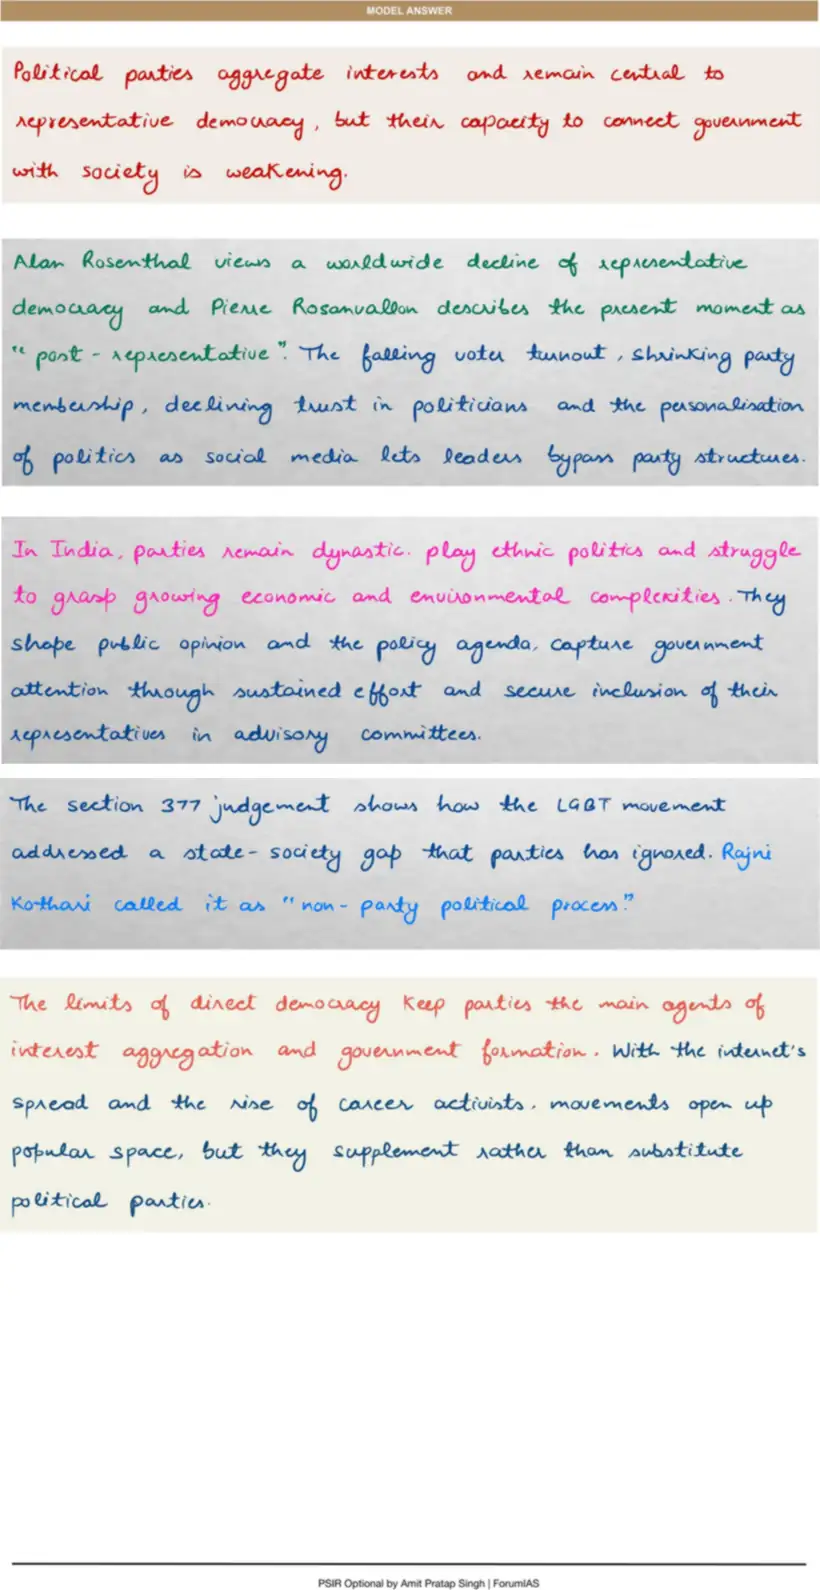 MODEL ANSWER
Political parties aggregate interests and remain central to
representative democracy, but their capacity to connect government
with society is weakening.
Alan Rosenthal views a worldwide decline of representative
democracy and Pierre Rosanvallon describes the present moment as
“post-representative”. The falling voter turnout, shrinking party
membership, declining trust in politicians and the personalisation
of politics as social media lets leaders bypass party structures.
In India, parties remain dynastic. play ethnic politics and struggle
to grasp growing economic and environmental complexities. They
shape public opinion and the policy agenda, capture government
attention through sustained effort and secure inclusion of their
representatives in advisory committees.
The section 377 judgement shows how the LGBT movement
addressed a state-society gap that parties has ignored. Rajni
Kothari called it as “non-party political process.”
The limits of direct democracy keep parties the main agents of
interest aggregation and government formation. With the internet's
spread and the rise of career activists. movements open up
popular space, but they supplement rather than substitute
political parties.
PSIR Optional by Amit Pratap Singh | ForumIAS